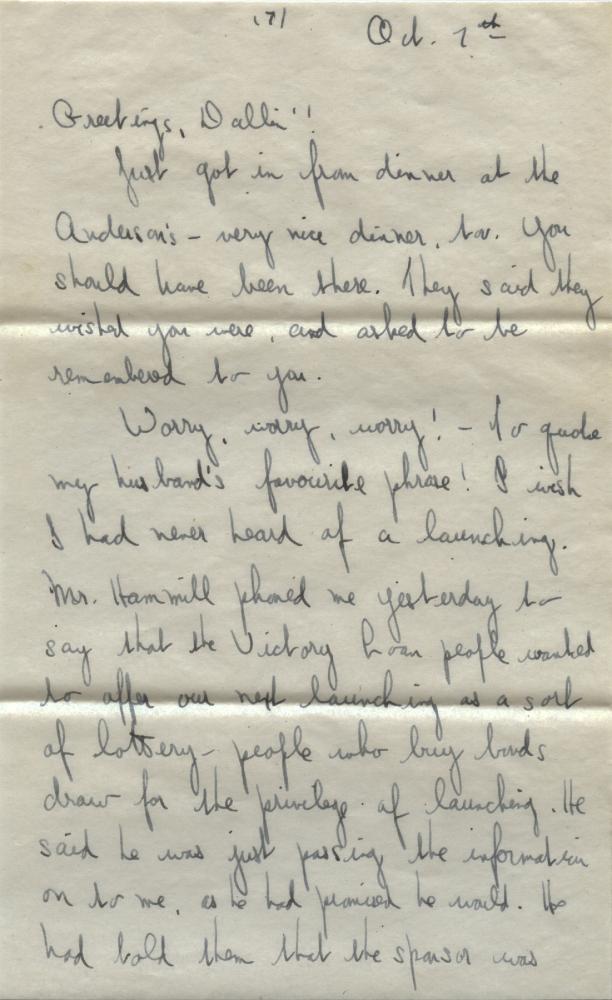 (7)
Oct. 7th
Greetings, Dallin'!
Just got in from dinner at the
Anderson's - very nice dinner, too. You
should have been there. They said they
wished you were, and asked to be
remembered to you.
Worry, worry, worry! - to quote
my husband's favourite phrase! I wish
I had never heard of a launching.
Mr. Hammill phoned me yesterday to
say that the Victory Loan people wanted
to offer our next launching as a sort
of lottery - people who buy bonds
draw for the privilege of launching. He
said he was just passing the information
on to me, as he had promised he would. He
had told them that the sponsor was